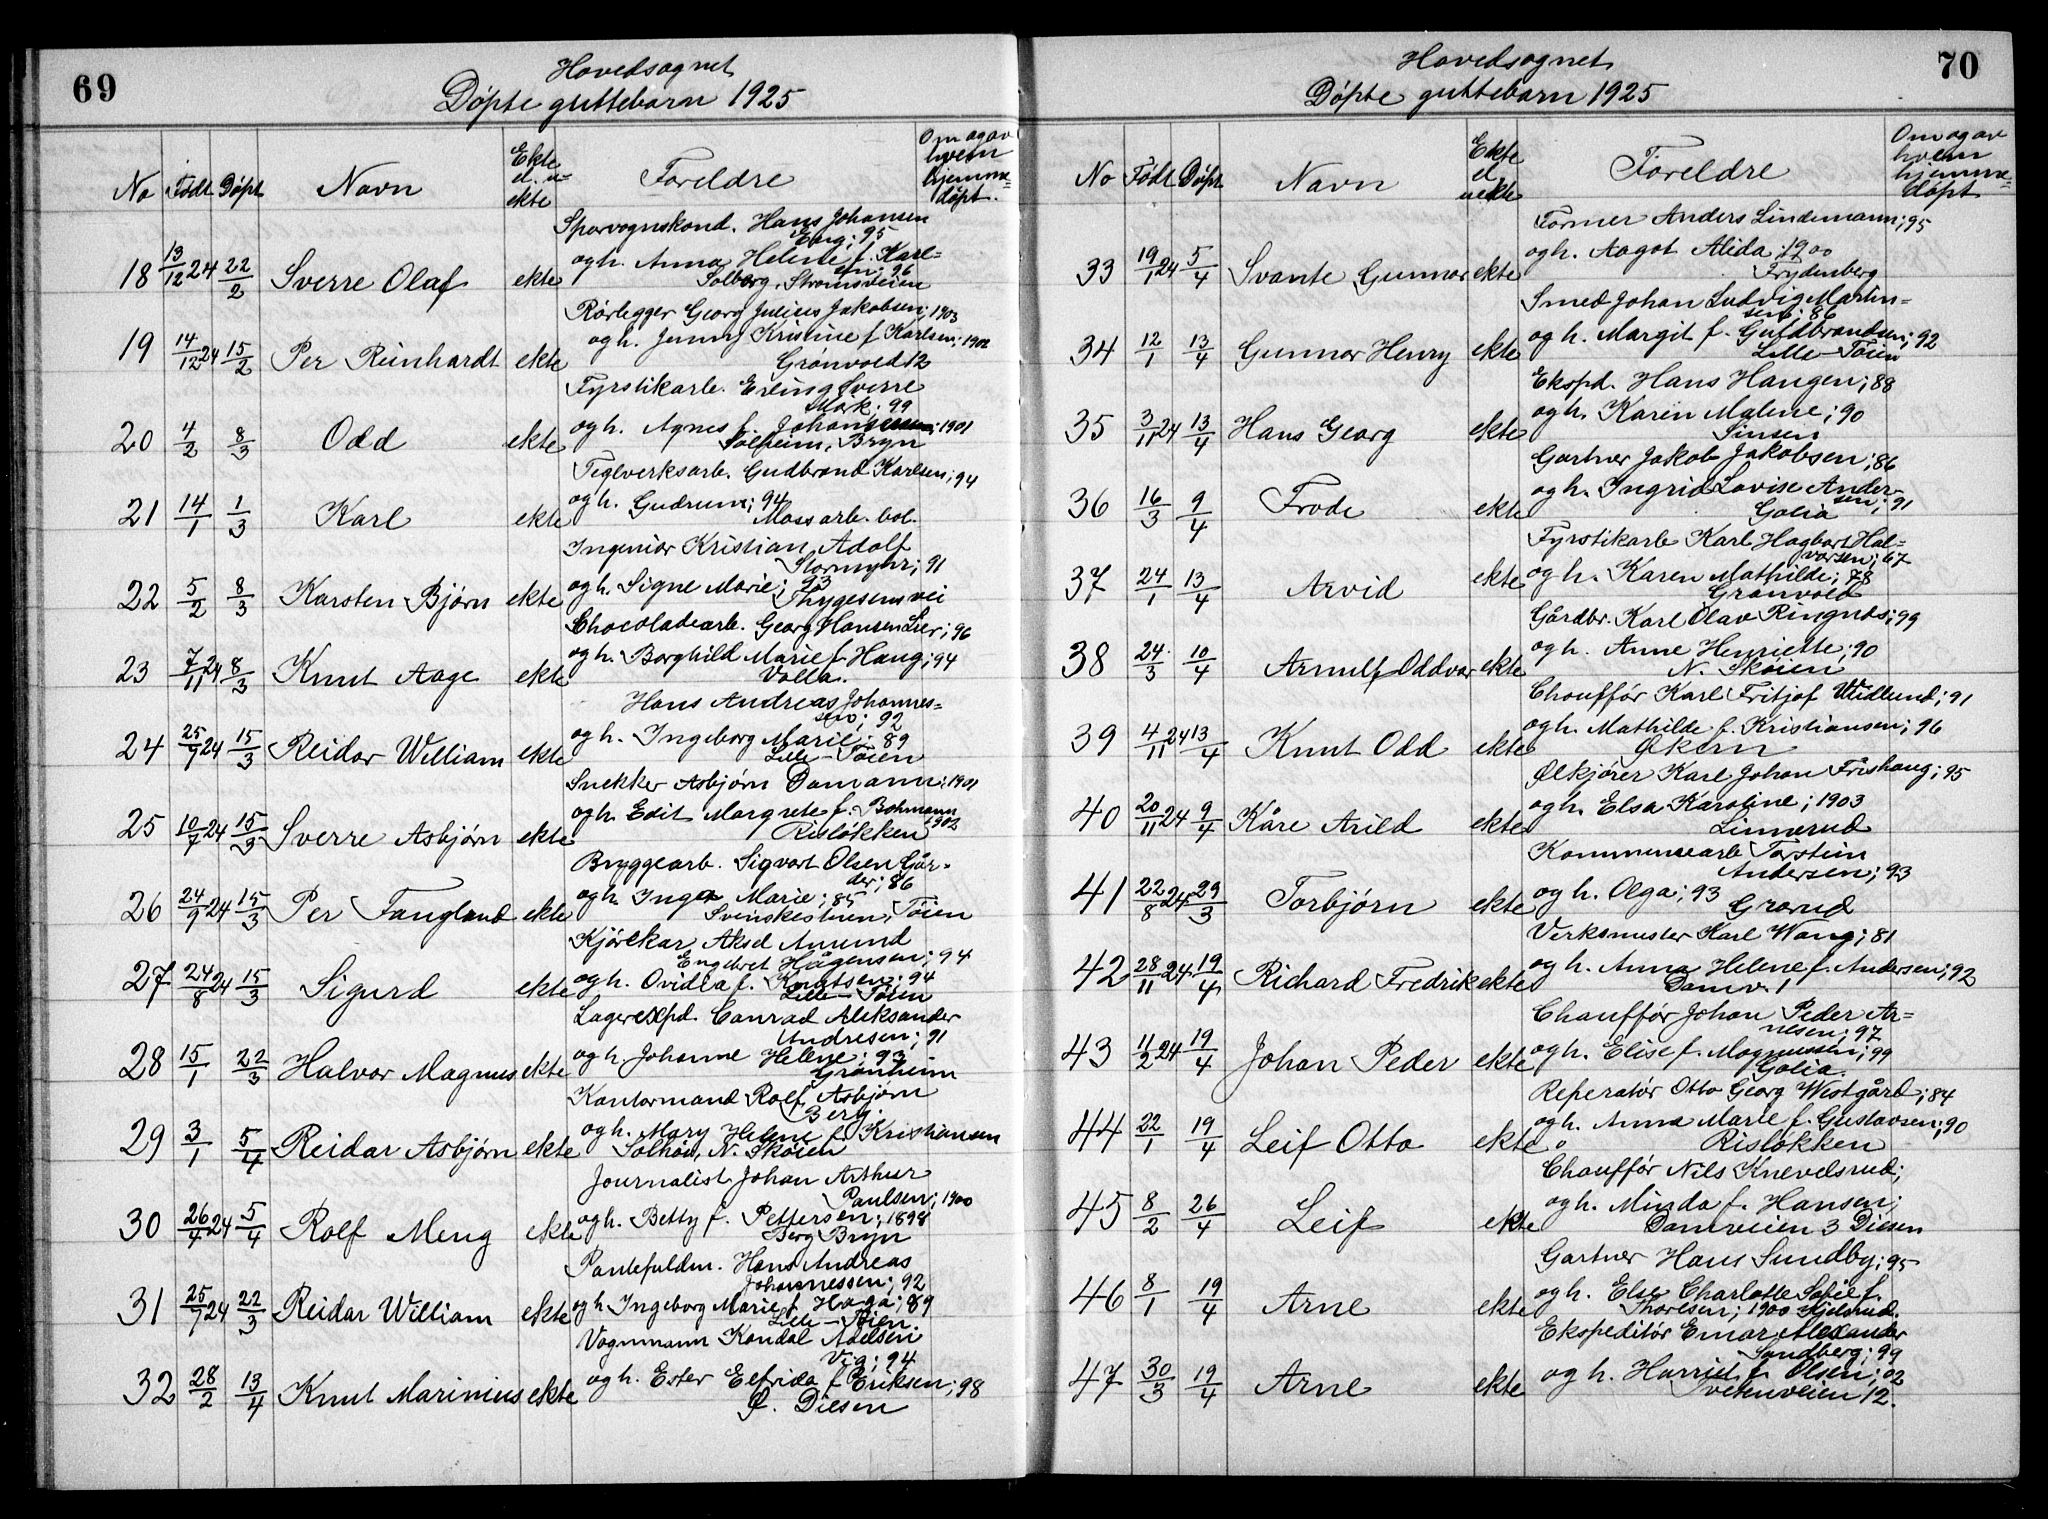 69
Hovedsognet
Döpte guttebarn 1925
No Födt Döpt Navn Ekte el. u-ekte Foreldre Om og av hvem hjemme-döpt.
Sporvognskond. Hans Johansen
Eng; 95
18 13/12 24 22/2 Sverre Olaf ekte og h. Anna Helene f. Karl-
sen; 96
Solberg, Strömsveien
Rörlegger Georg Julius Jakobsen; 1903
19 14/12 24 15/2 Per Reinhardt ekte og h. Jenny Kristine f. Karlsen; 1902
Grönvold 12
Fyrstikarb. Erling Sverre
Mork; 99
20 4/2 8/3 Odd ekte og h. Agnes f. Johansen; 1901
Solheim, Bryn
Teglverksarb. Gudbrand Karlsen; 94
21 14/1 1/3 Karl ekte og h. Gudrun; 94
Moss arb. bol.
Ingeniör Kristian Adolf
Stormyhr; 91
22 5/2 8/3 Karsten Björn ekte og h. Signe Marie; 93
Thygesens vei
Chocoladearb. Georg Hansen Lier; 96
23 7/11 24 8/3 Knut Aage ekte og h. Borghild Marie f. Haug; 94
Volla.
Hans Andreas Johannes-
sen; 92
24 25/7 24 15/3 Reidar William ekte og h. Ingeborg Marie; 89
Lille-Töien
Snekker Asbjörn Damann; 1901
25 10/7 24 15/3 Sverre Asbjörn ekte og h. Edit Margrete f. Bohmann
1902
Rislökken
Bryggearb. Sigvart Olsen Går-
der; 86
26 24/9 24 15/3 Per Fangland ekte og h. Inga Marie; 85
Svenskestuen, Töien
Kjörekar Aksel Amund
Engebret Hågensen; 94
27 24/8 24 15/3 Sigurd ekte og h. Ovidia f. Knutsen; 94
Lille-Töien
Lagerexpd. Conrad Aleksander
Andresen; 91
28 15/1 22/3 Halvor Magnus ekte og h. Johanne Helene; 93
Grönheim
Kontormand Rolf Asbjörn
Berg.
29 3/1 5/4 Reidar Asbjörn ekte og h. Mary Helene f. Kristiansen
Solhöi, N. Sköien
Journalist Johan Arthur
Paulsen; 1900
30 26/4 24 5/4 Rolf Meng ekte og h. Betty f. Pettersen; 1898
Berg Bryn
Pantefuldm. Hans Andreas
Johannessen; 92
31 25/7 24 22/3 Reidar William ekte og h. Ingeborg Marie f. Haga; 89
Lille-Töien.
Vognmann Kondal Adelsen
Vig; 94
32 28/2 13/4 Knut Marinius ekte og h. Ester Elfrida f. Eriksen; 98
Ö. Diesen
70
Hovedsognet
Döpte guttebarn 1925
No Födt Döpt Navn Ekte el uekte Foreldre Om og av hvem hjemme-döpt
Former Anders Lindemann; 95
33 19/1 24 5/4 Svante Gunnar ekte og h. Aagot Alida; 1900
Frydenberg
Smed Johan Ludvig Martin-
sen; 86
34 12/1 13/4 Gunnar Henry ekte og h. Margit f. Guldbrandsen; 92
Lille-Töien
Ekspd. Hans Haugen; 88
35 3/11 24 13/4 Hans Georg ekte og h. Karen Malene; 90
Sinsen
Gartner Jakob Jakobsen; 86
36 16/3 9/4 Frode ekte og h. Ingrid Lovise Ander-
sen; 91
Golia
Fyrstikarb Karl Hagbart Hal-
vorsen; 67
37 24/1 13/4 Arvid ekte og h. Karen Mathilde; 78
Grönvold
Gårdbr. Karl Olav Ringnes; 99
38 24/3 10/4 Arnulf Oddvar ekte og h. Anne Henriette; 90
N. Sköien
Chaufför Karl Fritjof Widlund; 91
39 4/11 24 13/4 Knut Odd ekte og h. Mathilde f. Kristiansen; 96
Økern
Ölkjörer Karl Johan Frishaug; 95
40 20/11 24 9/4 Kåre Arild ekte og h. Elsa Karoline; 1903
Linnerud
Kommunearb Torstein
Andersen; 93
41 22/8 24 29/3 Torbjörn ekte og h. Olga; 93 Grorud
Verksmester Karl Wang; 81
42 28/11 24 19/4 Richard Fredrik ekte og h. Anna Helene f. Andersen; 92
Damv. 1
Chaufför Johan Peder Ar-
nesen; 97
43 11/2 24 19/4 Johan Peder ekte og h. Elise f. Magnussen; 99
Golia.
Reperatör Otto Georg Westgård; 84
44 22/1 19/4 Leif Otto ekte og h. Anna Marie f. Gustavsen; 90
Rislökken
Chaufför Nils Knevelsrud;
45 8/2 26/4 Leif ekte og h. Minda f. Hansen;
Damveien 3 Diesen
Gartner Hans Sundby; 95
46 8/1 19/4 Arne ekte og h. Else Charlotte Sofie f.
Thoresen; 1900
Ekspeditör Einar Alexander
Sandberg; 99
47 30/3 19/4 Arne ekte og h. Harriet f. Olsen; 02
Svehnveien 12.